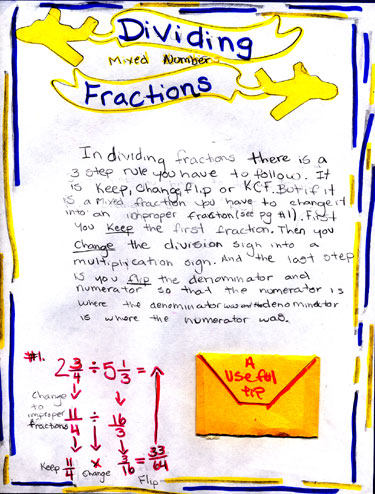 Dividing
Mixed Number
Fractions
In dividing fractions there is a
3 step rule you have to follow. It
is Keep, Change, flip or KCF. But if it
is a mixed fraction you have to change it
into an improper fraction (see pg #1). First
you Keep the first fraction. Then you
Change the division sign into a
multiplication sign. And the last step
is you flip the denominator and
numerator so that the numerator is
where the denominator was and the denominator
is where the numerator was.
#1.
2 3/4 ÷ 5 1/3 =
Change
to
improper
fractions
11/4 ÷ 16/3
Keep 11/4 x Change 3/16 = 33/64
Flip
A
useful
tip